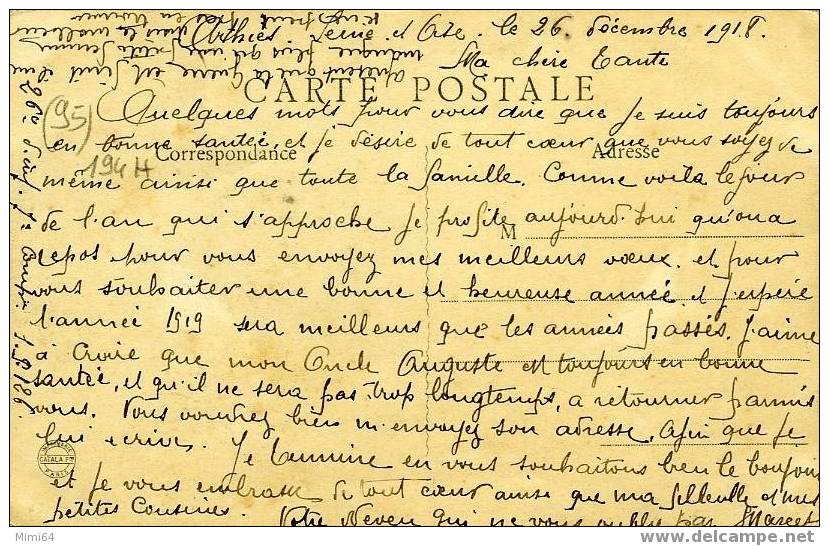 Arthies Seine et Oise. le 26. décembre 1918.
Ma chère Tante
CARTE POSTALE
(95)
194 H
Correspondance
Adresse
M
Quelques mots pour vous dire que je suis toujours
en bonne santée, et je désire de tout cœur que vous soyez de
même ainsi que toute la famille. Comme voila le jour
de l'an qui s'approche je profite aujourd'hui qu'on a
repos pour vous envoyez mes meilleurs vœux. et pour
vous souhaiter une bonne et heureuse année. et j'espère
l'année 1919 sera meilleurs que les années passés. J'aime
à croire que mon Oncle Auguste est toujours en bonne
santée, et qu'il ne sera pas trop longtemps, a retourner parmis
vous. Vous voudrez bien m'envoyez son adresse, afin que je
lui écrive. Je termine en vous souhaitons bien le bonjour
et je vous embrasse de tout cœur ainsi que ma filleulle et mes
petites Cousines. Votre Neveu qui ne vous oublie pas Marcel
CATALA FRES
PARIS
26e 7e S.P. 186
à présent que la guerre est finit il ne
manque plus qui une petite femme
Mimi64
delcampe.net